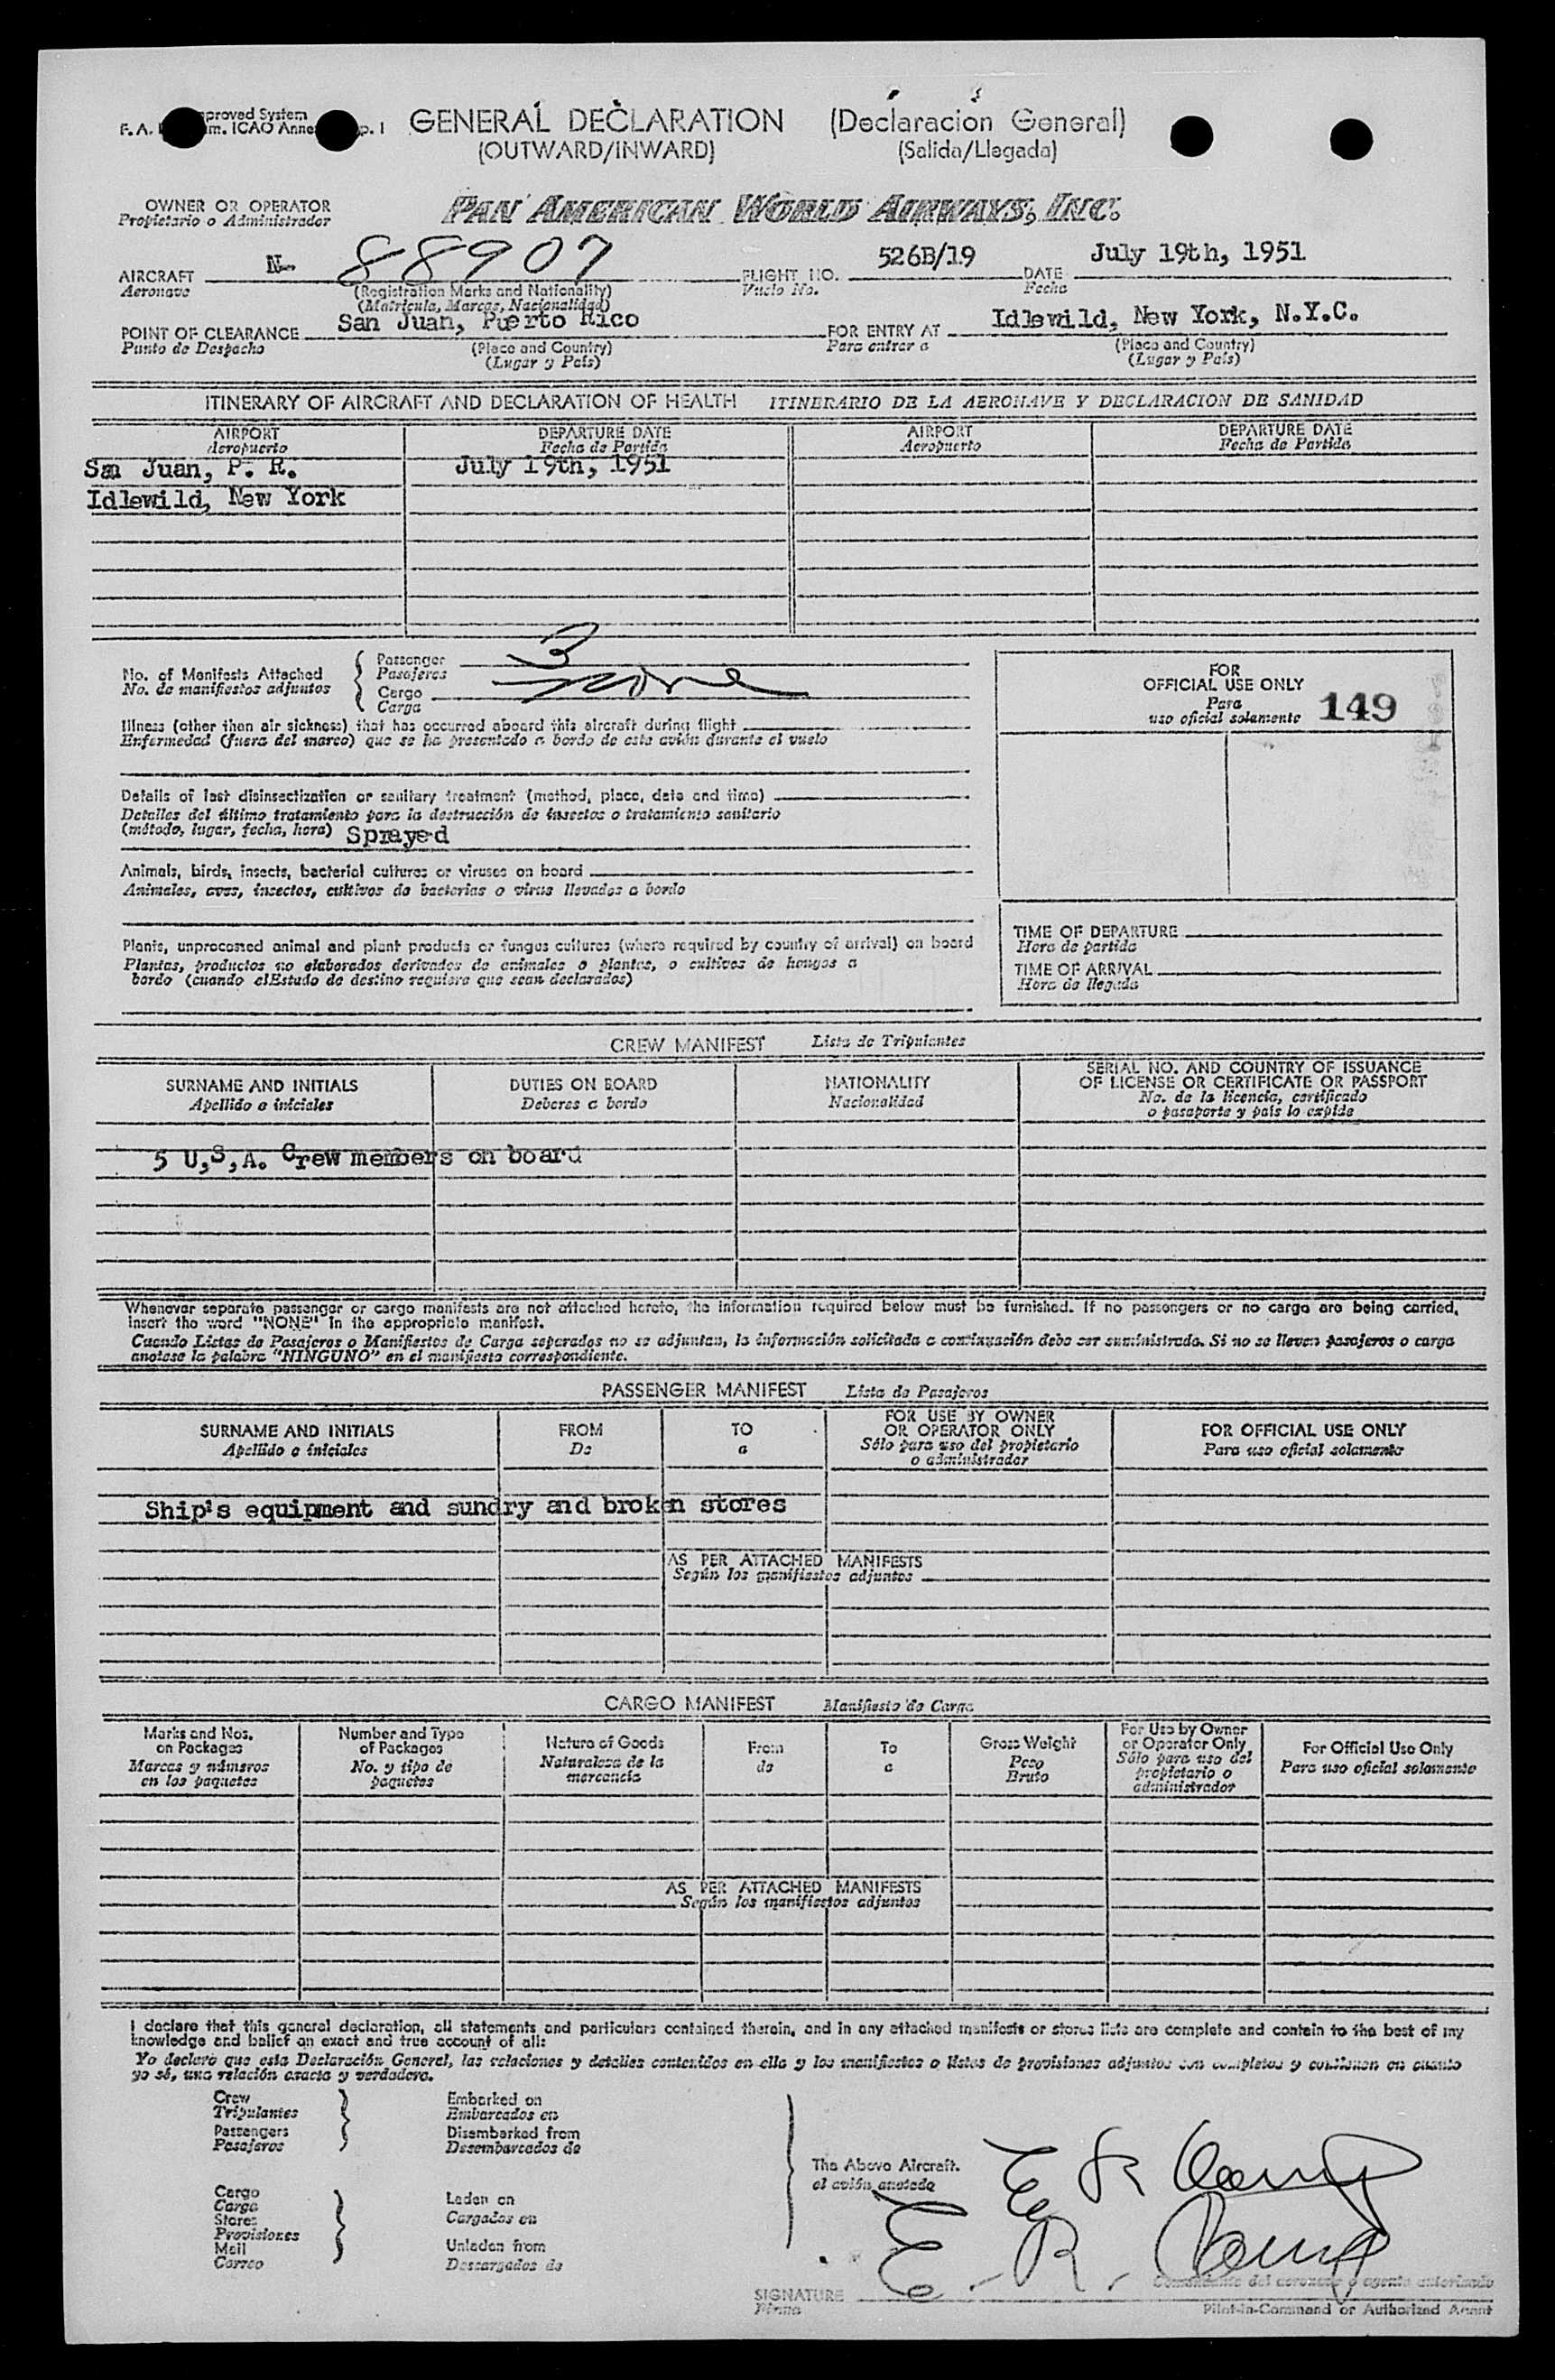 GENERAL DECLARATION (Declaracion General)
(OUTWARD/INWARD) (Salida/Llegada)
OWNER OR OPERATOR PAN AMERICAN WORLD AIRWAYS, INC.
Propietario o Administrador
AIRCRAFT N- 88907 FLIGHT NO. 526B/19 DATE July 19th, 1951
Aeronave (Registration Marks and Nationality) Vuelo No. Fecha
(Matricula, Marcas, Nacionalidad)
POINT OF CLEARANCE San Juan, Puerto Rico FOR ENTRY AT Idlewild, New York, N.Y.C.
Punto de Despacho (Place and Country) Para entrar a (Place and Country)
(Lugar y País) (Lugar y País)
ITINERARY OF AIRCRAFT AND DECLARATION OF HEALTH ITINERARIO DE LA AERONAVE Y DECLARACION DE SANIDAD
AIRPORT DEPARTURE DATE AIRPORT DEPARTURE DATE
Aeropuerto Fecha de Partida Aeropuerto Fecha de Partida
San Juan, P. R. July 19th, 1951
Idlewild, New York
No. of Manifests Attached Passenger 3
No. de manifiestos adjuntos Pasajeros
Cargo none
Carga
FOR
OFFICIAL USE ONLY
Para
uso oficial solamente 149
Illness (other than air sickness) that has occurred aboard this aircraft during flight
Enfermedad (fuera del mareo) que se ha presentado a bordo de este avión durante el vuelo
Details of last disinsectization or sanitary treatment (method, place, date and time)
Detalles del último tratamiento para la destrucción de insectos o tratamiento sanitario
(método, lugar, fecha, hora) Sprayed
Animals, birds, insects, bacterial cultures or viruses on board
Animales, aves, insectos, cultivos de bacterias o virus llevados a bordo
Plants, unprocessed animal and plant products or fungus cultures (where required by country of arrival) on board
Plantas, productos no elaborados derivados de animales o plantas, o cultivos de hongos a
bordo (cuando el Estado de destino requiera que sean declarados)
TIME OF DEPARTURE
Hora de partida
TIME OF ARRIVAL
Hora de llegada
CREW MANIFEST Lista de Tripulantes
SURNAME AND INITIALS DUTIES ON BOARD NATIONALITY SERIAL NO. AND COUNTRY OF ISSUANCE
Apellido e iniciales Deberes a bordo Nacionalidad OF LICENSE OR CERTIFICATE OR PASSPORT
No. de la licencia, certificado
o pasaporte y país lo expide
5 U,S,A. Crew members on board
Whenever separate passenger or cargo manifests are not attached hereto, the information required below must be furnished. If no passengers or no cargo are being carried,
insert the word "NONE" in the appropriate manifest.
Cuando Listas de Pasajeros o Manifiestos de Carga separados no se adjuntan, la información solicitada a continuación debe ser suministrada. Si no se llevan pasajeros o carga
anotese la palabra "NINGUNO" en el manifiesto correspondiente.
PASSENGER MANIFEST Lista de Pasajeros
SURNAME AND INITIALS FROM TO FOR USE BY OWNER FOR OFFICIAL USE ONLY
Apellido e iniciales De a OR OPERATOR ONLY Para uso oficial solamente
Sólo para uso del propietario
o administrador
Ship's equipment and sundry and broken stores
AS PER ATTACHED MANIFESTS
Según los manifiestos adjuntos
CARGO MANIFEST Manifiesto de Carga
Marks and Nos. Number and Type Nature of Goods From To Gross Weight For Use by Owner For Official Use Only
on Packages of Packages Naturaleza de la de a Peso or Operator Only Para uso oficial solamente
Marcas y números No. y tipo de mercancía Bruto Sólo para uso del
en los paquetes paquetes propietario o
administrador
AS PER ATTACHED MANIFESTS
Según los manifiestos adjuntos
I declare that this general declaration, all statements and particulars contained therein, and in any attached manifests or stores lists are complete and contain to the best of my
knowledge and belief an exact and true account of all:
Yo declaro que esta Declaración General, las relaciones y detalles contenidos en ella y los manifiestos o listas de provisiones adjuntos son completos y contienen en cuanto
yo sé, una relación exacta y verdadera.
Crew Embarked on
Tripulantes Embarcados en
Passengers Disembarked from
Pasajeros Desembarcados de
The Above Aircraft.
el avión anotado
Cargo Laden on
Carga Cargados en
Stores
Provisiones
Mail Unladen from
Correo Descargados de
E. R.
SIGNATURE Comandante del aeronave o agente autorizado
Firma Pilot-in-Command or Authorized Agent